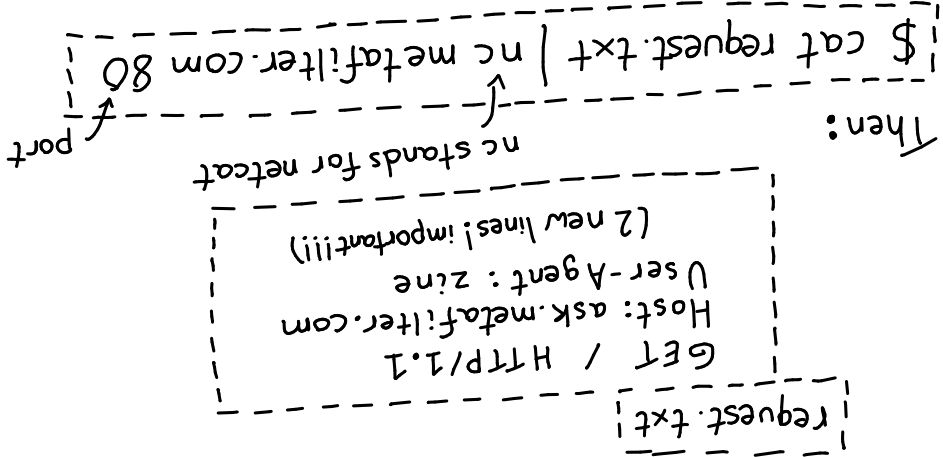 request.txt
GET / HTTP/1.1
Host: ask.metafilter.com
User-Agent: zine
(2 new lines! important!!!)
nc stands for netcat
Then:
port
$ cat request.txt | nc metafilter.com 80